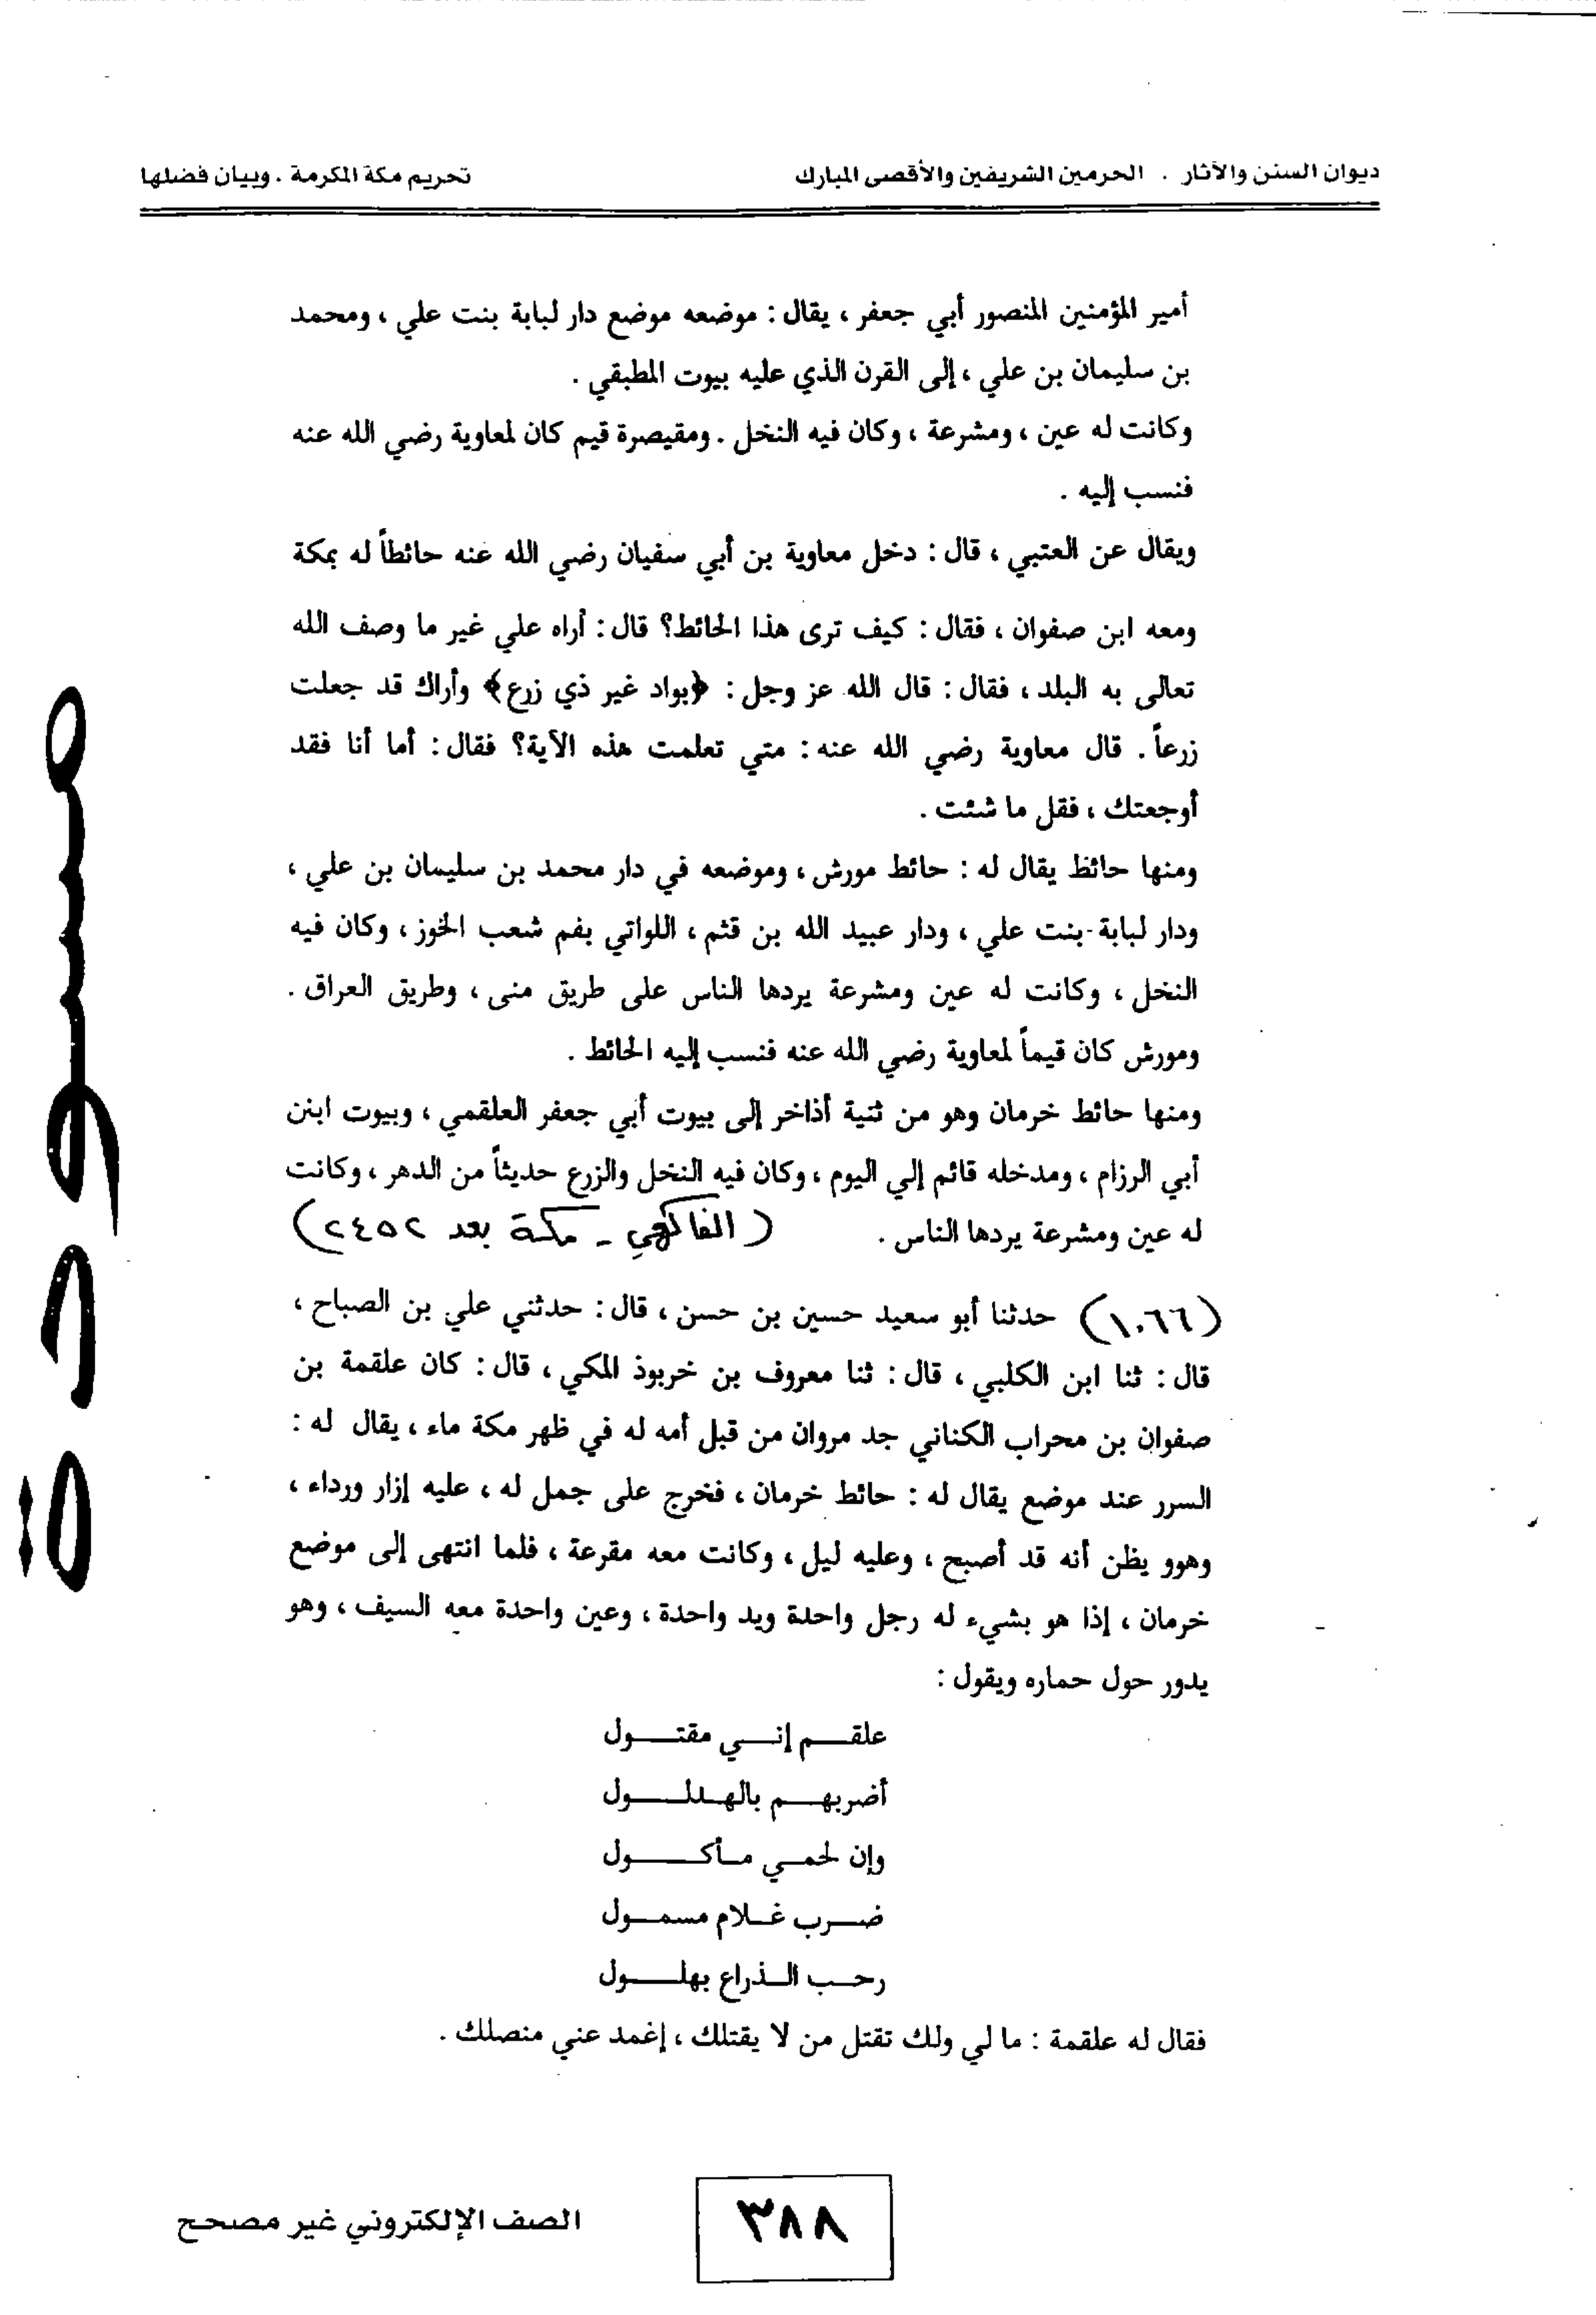 ديوان السنن والآثار . الحرمين الشريفين والأقصى المبارك
تحريم مكة المكرمة . وبيان فضلها
أمير المؤمنين المنصور أبي جعفر ، يقال : موضعه موضع دار لبابة بنت علي ، ومحمد
بن سليمان بن علي ، إلى القرن الذي عليه بيوت المطبقي .
وكانت له عين ، ومشرعة ، وكان فيه النخل . ومقيصرة قيم كان لمعاوية رضي الله عنه
فنسب إليه .
ويقال عن العتبي ، قال : دخل معاوية بن أبي سفيان رضي الله عنه حائطاً له بمكة
ومعه ابن صفوان ، فقال : كيف ترى هذا الحائط؟ قال : أراه علي غير ما وصف الله
تعالى به البلد ، فقال : قال الله عز وجل : ﴿بواد غير ذي زرع﴾ وأراك قد جعلت
زرعاً . قال معاوية رضي الله عنه : متي تعلمت هذه الآية؟ فقال : أما أنا فقد
أوجعتك ، فقل ما شئت .
ومنها حائظ يقال له : حائط مورش ، وموضعه في دار محمد بن سليمان بن علي ،
ودار لبابة بنت علي ، ودار عبيد الله بن قثم ، اللواتي بفم شعب الخوز ، وكان فيه
النخل ، وكانت له عين ومشرعة يردها الناس على طريق منى ، وطريق العراق .
ومورش كان قيماً لمعاوية رضي الله عنه فنسب إليه الحائط .
ومنها حائط خرمان وهو من ثنية أذاخر إلى بيوت أبي جعفر العلقمي ، وبيوت ابنن
أبي الرزام ، ومدخله قائم إلي اليوم ، وكان فيه النخل والزرع حديثاً من الدهر ، وكانت
له عين ومشرعة يردها الناس . ( الفاكهي - مكة بعد ٢٤٥٢ )
(١٠٦٦) حدثنا أبو سعيد حسين بن حسن ، قال : حدثني علي بن الصباح ،
قال : ثنا ابن الكلبي ، قال : ثنا معروف بن خربوذ المكي ، قال : كان علقمة بن
صفوان بن محراب الكناني جد مروان من قبل أمه له في ظهر مكة ماء ، يقال له :
السرر عند موضع يقال له : حائط خرمان ، فخرج على جمل له ، عليه إزار ورداء ،
وهوو يظن أنه قد أصبح ، وعليه ليل ، وكانت معه مقرعة ، فلما انتهى إلى موضع
خرمان ، إذا هو بشيء له رجل واحدة ويد واحدة ، وعين واحدة معه السيف ، وهو
يدور حول حماره ويقول :
علقـــم إنـــي مقتـــول
أضربهـــم بالهدلـــول
وإن لحمـي مـأكـــول
ضـــرب غـلام مسمـول
رحـــب الـذراع بهلـــول
فقال له علقمة : ما لي ولك تقتل من لا يقتلك ، إغمد عني منصلك .
مسودة
٣٨٨
الصف الإلكتروني غير مصحح